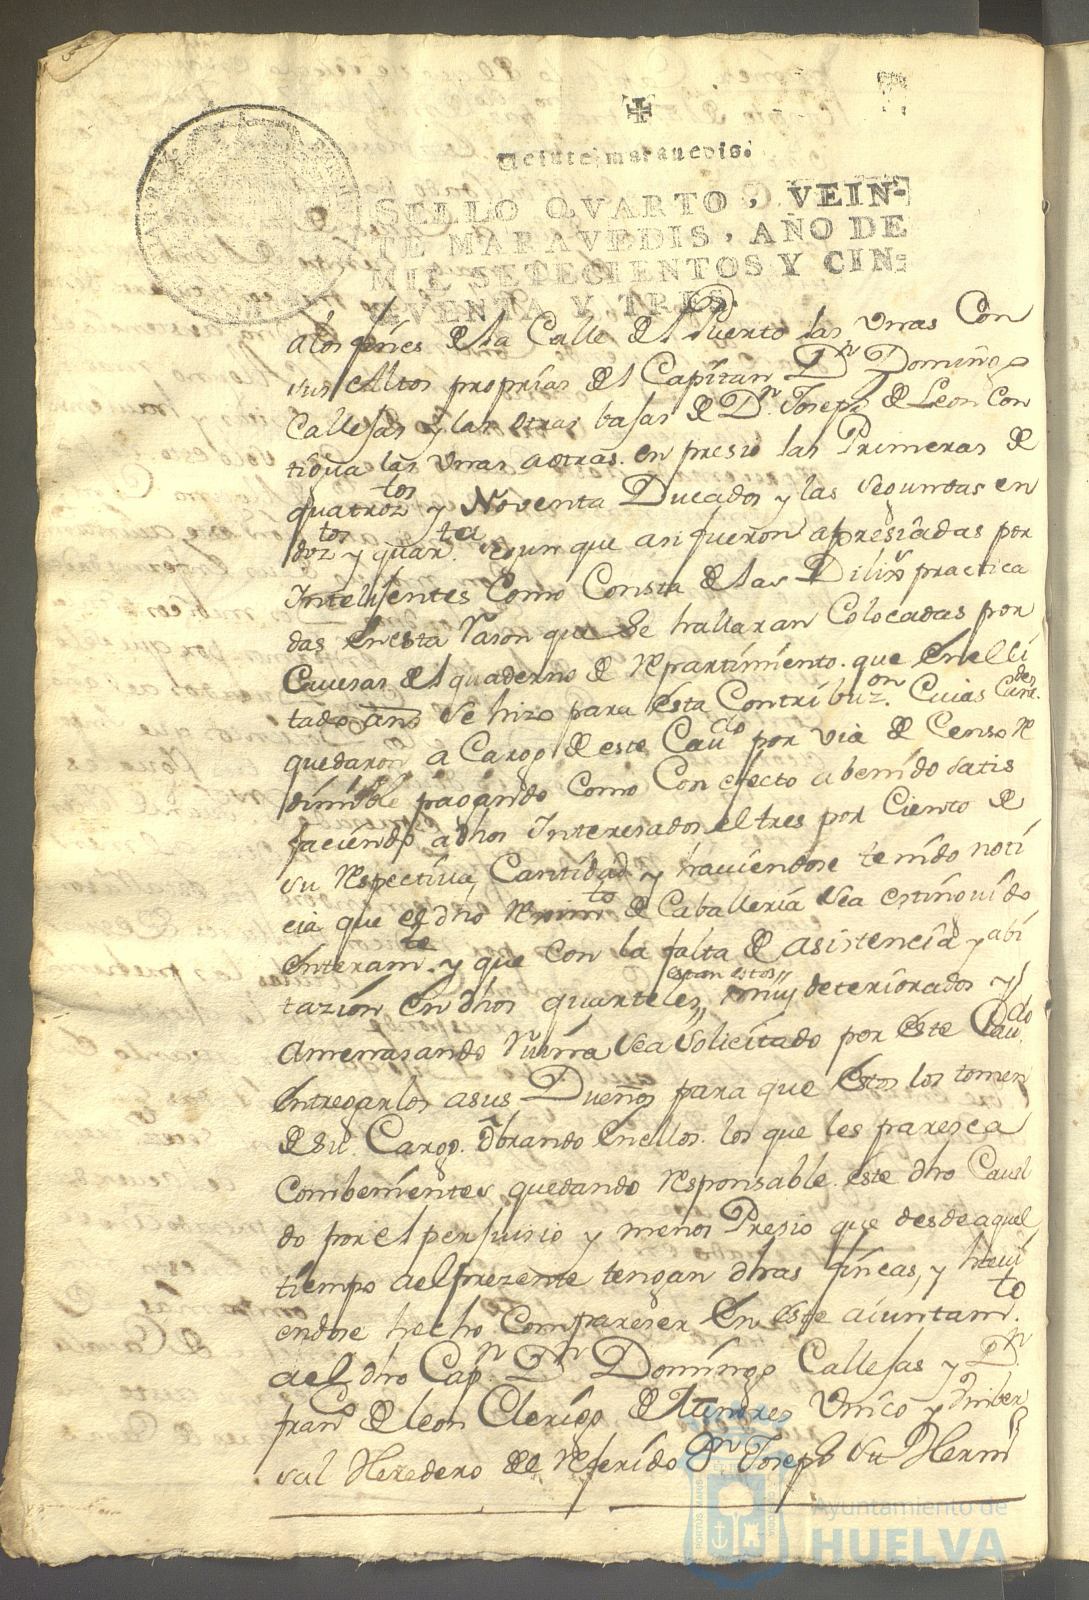 Veinte maravedis.
SELLO QVARTO, VEIN-
TE MARAVEDIS, AÑO DE
MIL SETECIENTOS Y CIN-
QVENTA Y TRES.
a los fines de la Calle del Puerto las unas Con
sus Altos proprias del Capitan Dn Domingo
Callejas y las otras bajas de Dn Joseph de Leon con
tigua las unas a otras en presio las Primeras de
quatroztos y Noventa Ducados y las segundas en
doztos y quarta segun que asi fueron apresiadas por
Intelijentes Como Consta de las Dilixs practica
das en esta rason que se hallaran Colocadas por
Cavesas del quaderno de repartimiento que en el ci
tado año se hizo para esta Contribuzon Cuias Cantdes
quedaron a Cargo de este Cavdo por via de Censo re
dimible pagando como Con efecto a benido satis
faciendo a dhos Interesados el tres por Ciento de
su respectiva Cantidad y haviendose tenido noti
cia que el dho rejimto de Caballeria sea estinguido
enteramte y que con la falta de asistencia y abi
tazion en dhos quarteles estan estos muy deteriorados y
Amenasando ruina sea solicitado por este Cavdo
entregarlos a sus Dueños para que estos los tomen
de su Cargo obrando en ellos los que les paresca
combenientes quedando responsable este dho Cavil
do por el perjuisio y menos Presio que desde aquel
tiempo ael prezente tengan dhas fincas, y havi
endose hecho Compareser en este aiuntamto
ael dho Capn Dn Domingo Callejas y Dn
Frano de Leon Clerigo de Menores Unico y Uniber
sal Heredero del referido Dn Joseph su Hermo
Ayuntamiento de
HUELVA